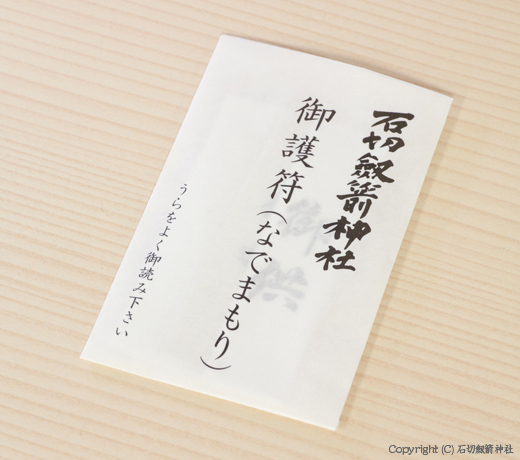 石切劔箭神社
御護符（なでまもり）
うらをよく御読み下さい
御供
Copyright (C) 石切劔箭神社